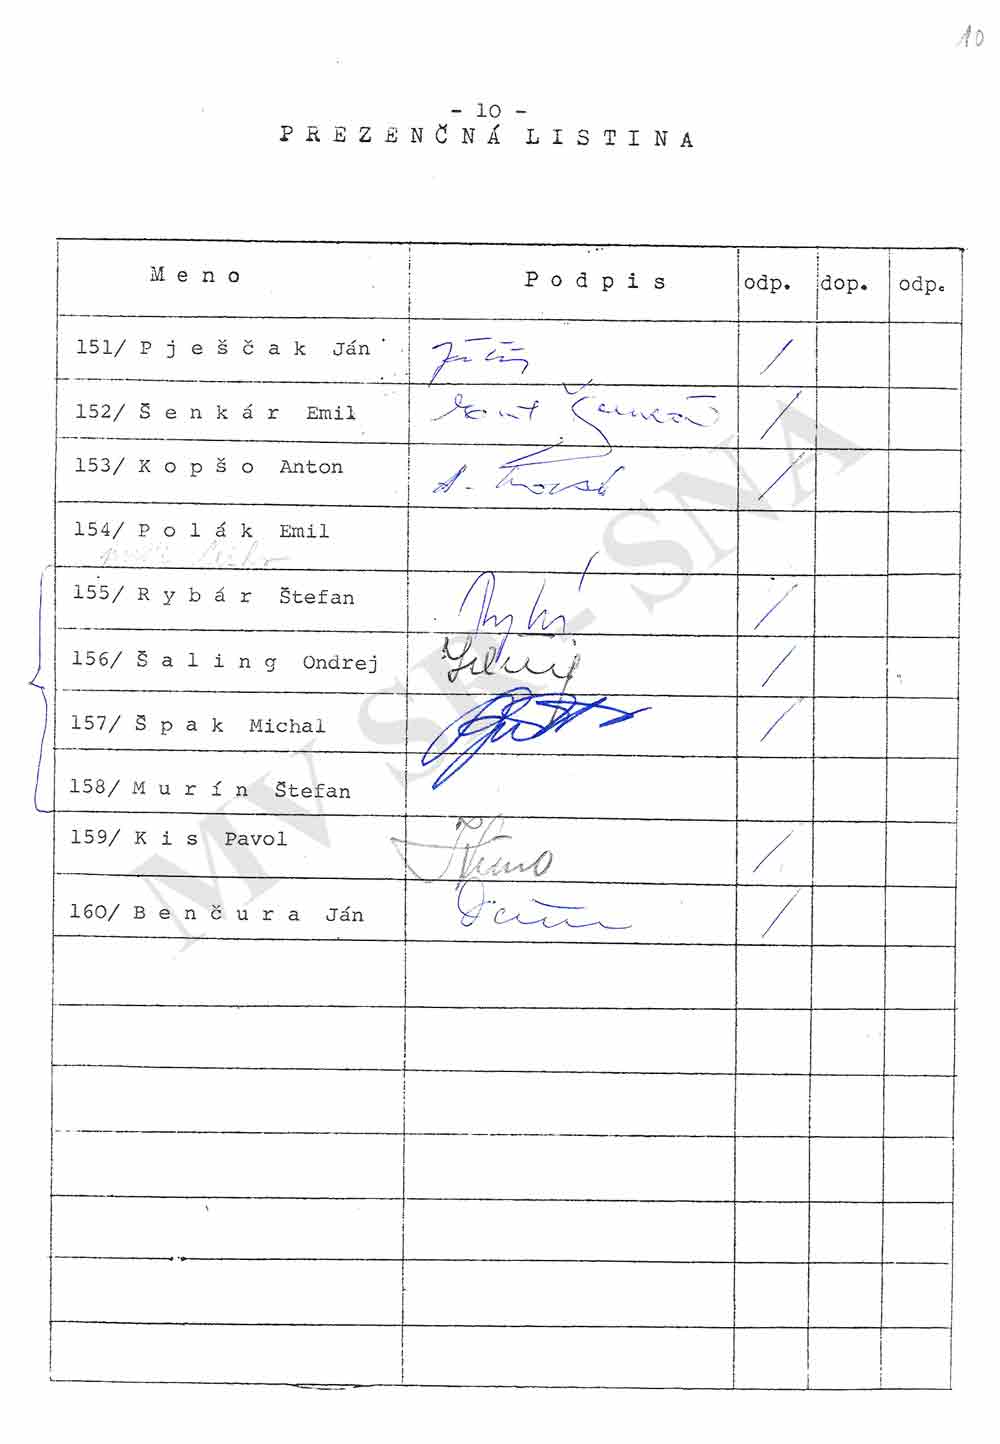 10
- 10 -
PREZENČNÁ LISTINA
Meno Podpis odp. dop. odp.
151/ Pješčak Ján /
152/ Šenkár Emil Emil Šenkár /
153/ Kopšo Anton A. Kopšo /
154/ Polák Emil
155/ Rybár Štefan /
156/ Šaling Ondrej /
157/ Špak Michal /
158/ Murín Štefan
159/ Kis Pavol /
160/ Benčura Ján /
MV SR - SNA